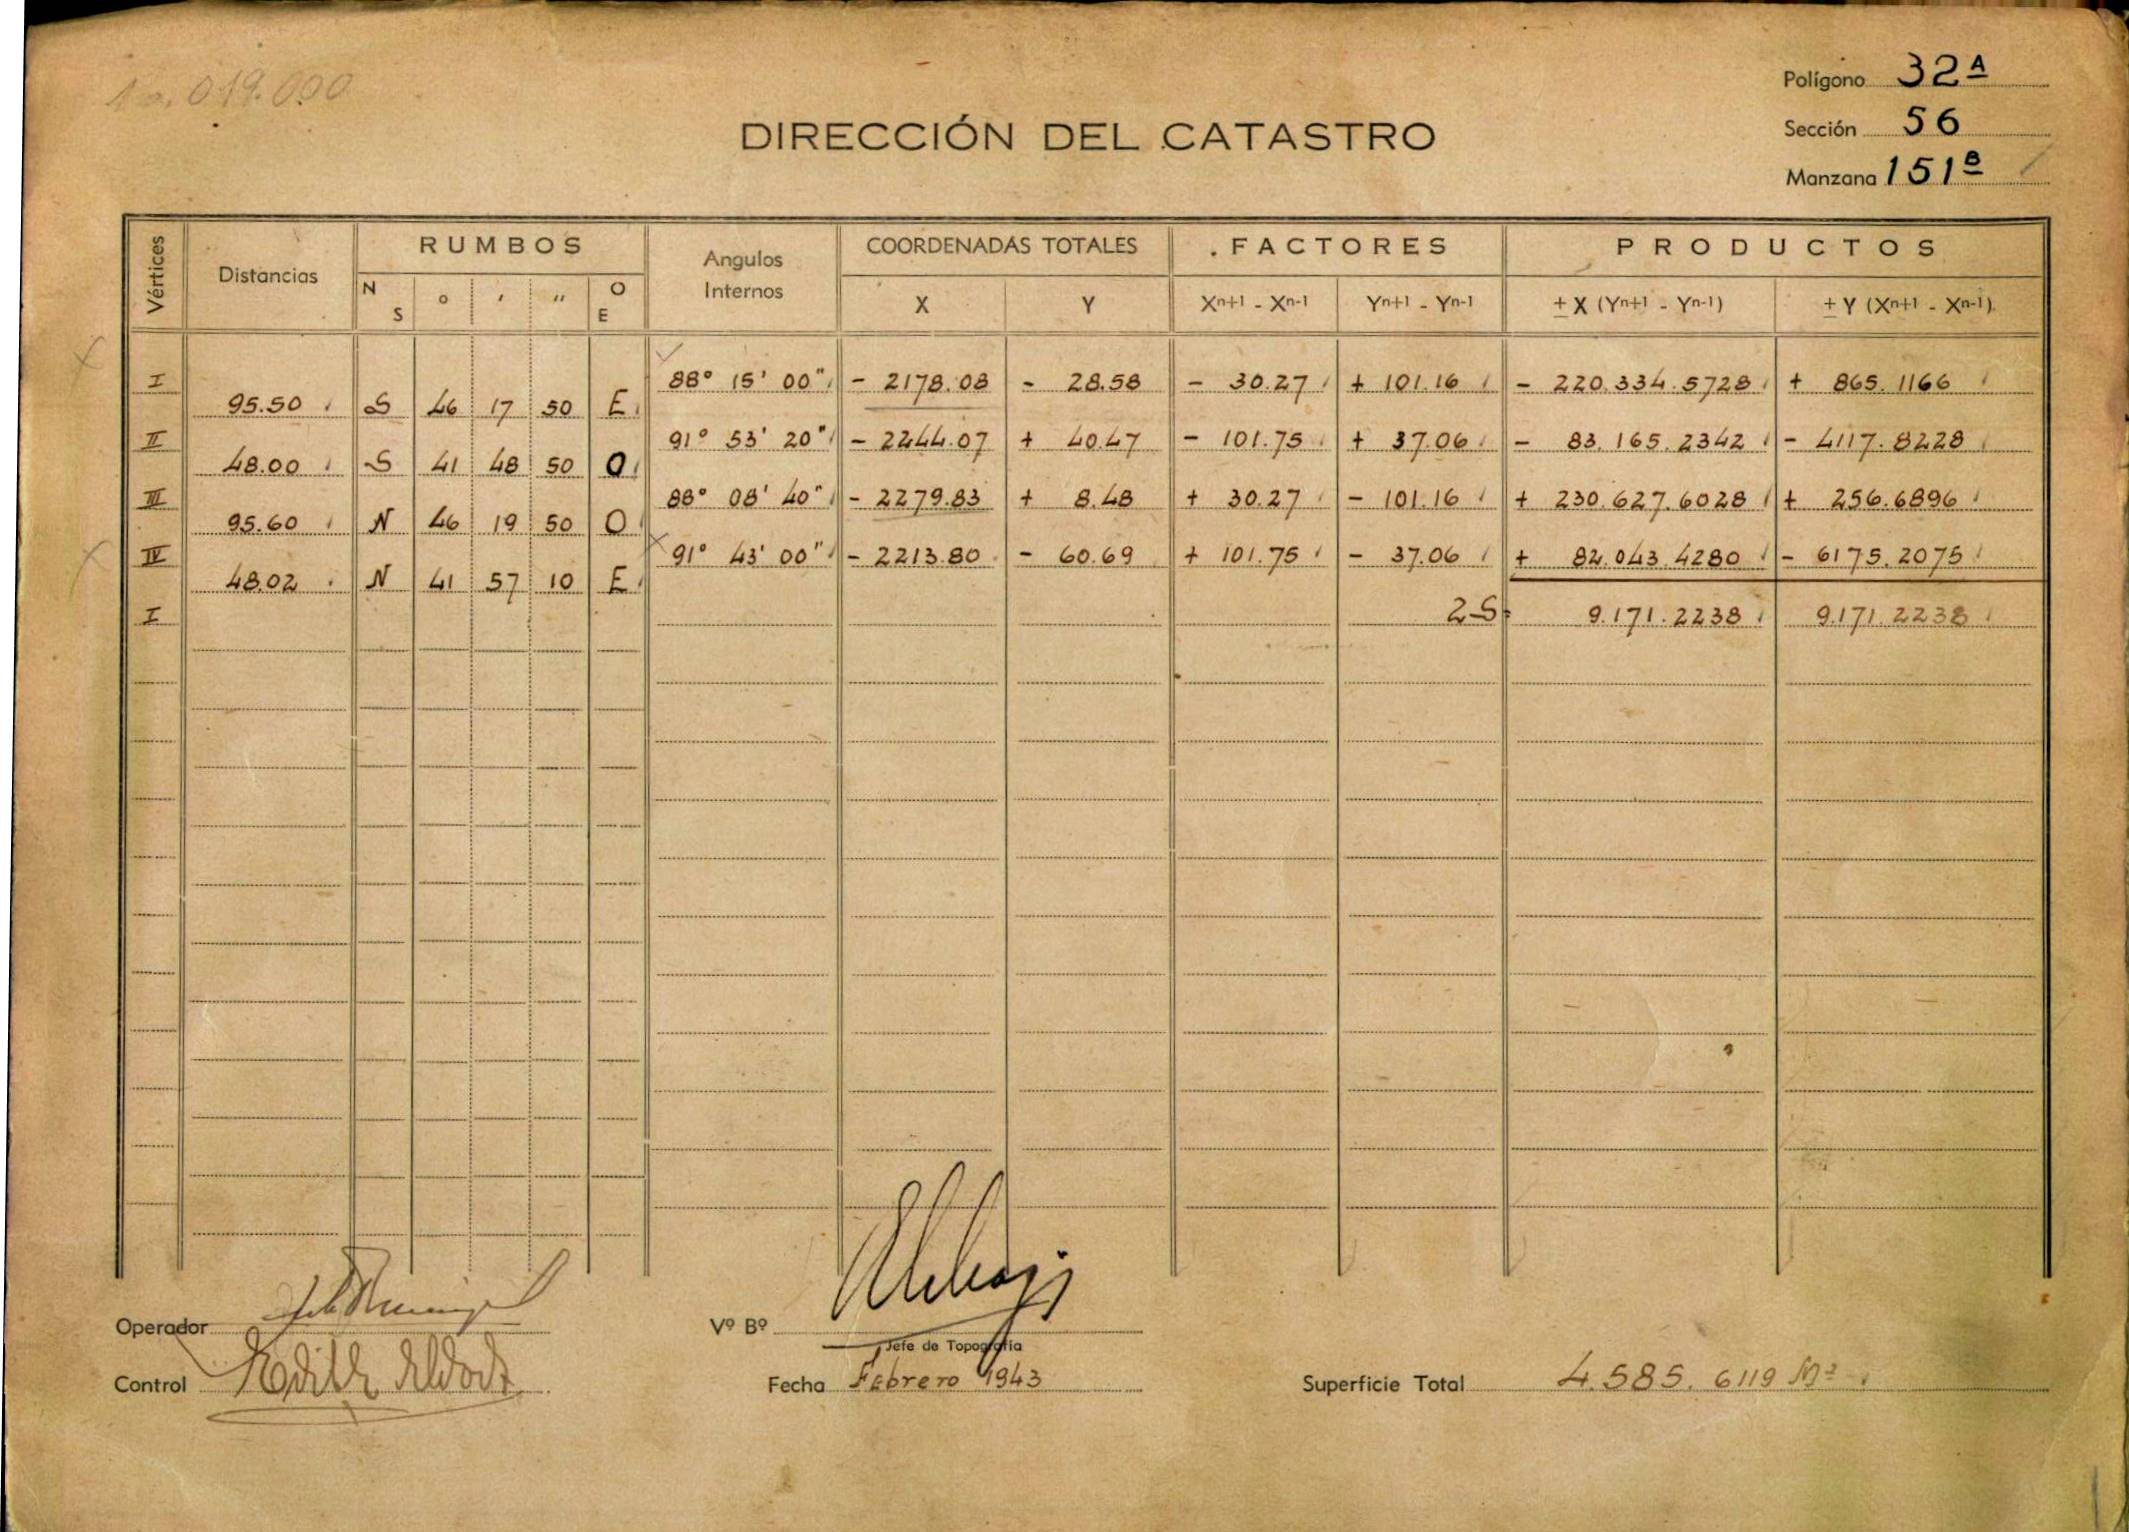 1a. 019.000
Polígono 32 A
DIRECCIÓN DEL CATASTRO
Sección 56
Manzana 151 B
Vértices Distancias RUMBOS Angulos Internos COORDENADAS TOTALES FACTORES PRODUCTOS
N S ° ' '' O E X Y Xn+1 - Xn-1 Yn+1 - Yn-1 ± X (Yn+1 - Yn-1) ± Y (Xn+1 - Xn-1)
I 88° 15' 00" - 2178.08 - 28.58 - 30.27 + 101.16 - 220.334.5728 + 865.1166
95.50 S 46 17 50 E
II 91° 53' 20" - 2244.07 + 40.47 - 101.75 + 37.06 - 83.165.2342 - 4117.8228
48.00 S 41 48 50 O
III 88° 08' 40" - 2279.83 + 8.48 + 30.27 - 101.16 + 230.627.6028 + 256.6896
95.60 N 46 19 50 O
IV 91° 43' 00" - 2213.80 - 60.69 + 101.75 - 37.06 + 82.043.4280 - 6175.2075
48.02 N 41 57 10 E
I 2S= 9.171.2238 9.171.2238
Operador Vº Bº
Jefe de Topografía
Control Fecha Febrero 1943 Superficie Total 4.585.6119 M2